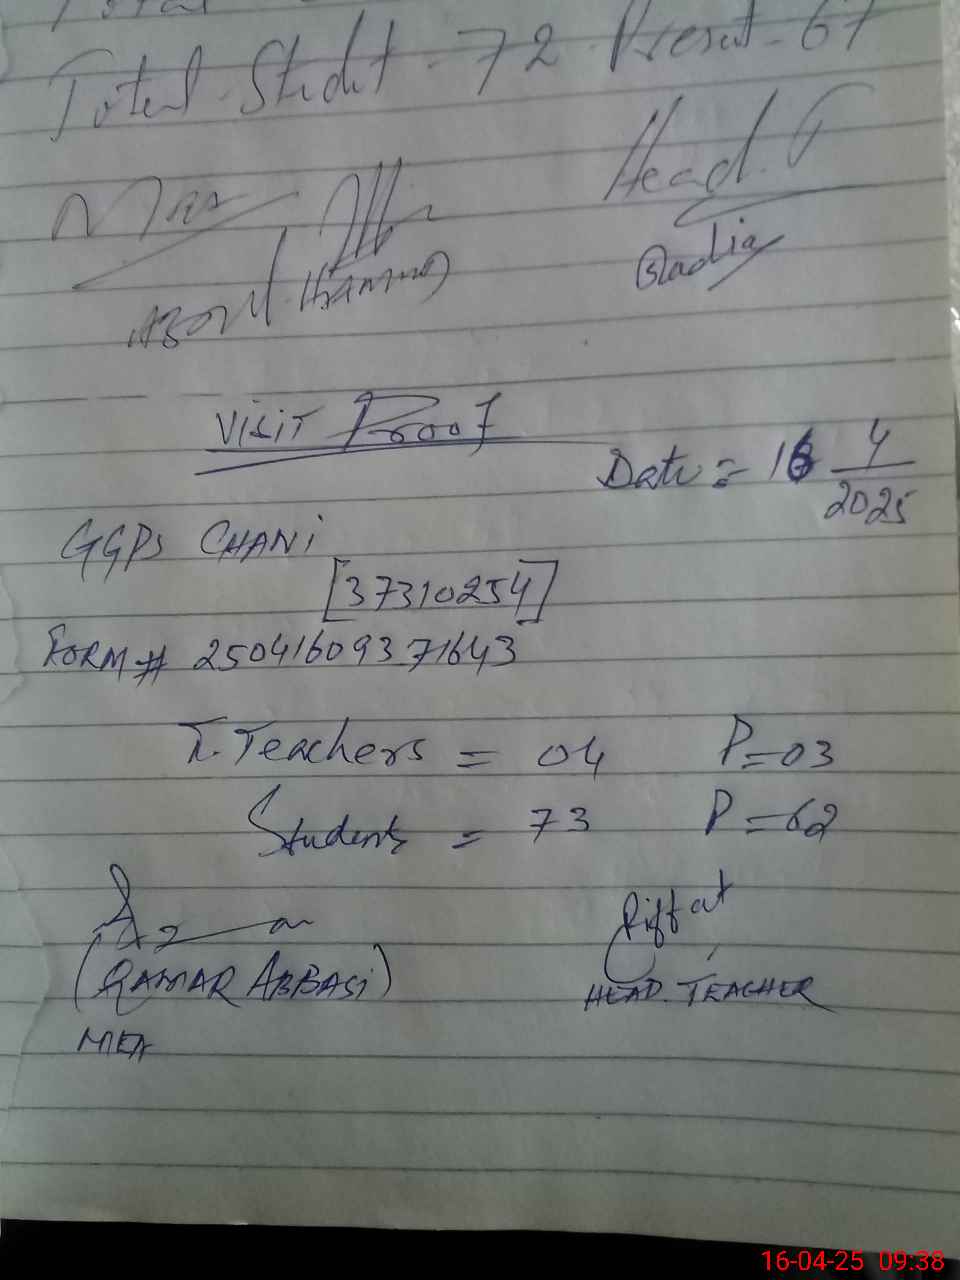 Total
Total Studt - 72 Present - 67
Head.T
Sadia
VISIT Proof
Date = 16 4/2025
GGPS CHANi
[37310254]
FORM # 25041609371643
T.Teachers = 04 P=03
Students = 73 P=62
Riffat
(QAMAR ABBASi)
HEAD.TEACHER
MEA
16-04-25 09:38